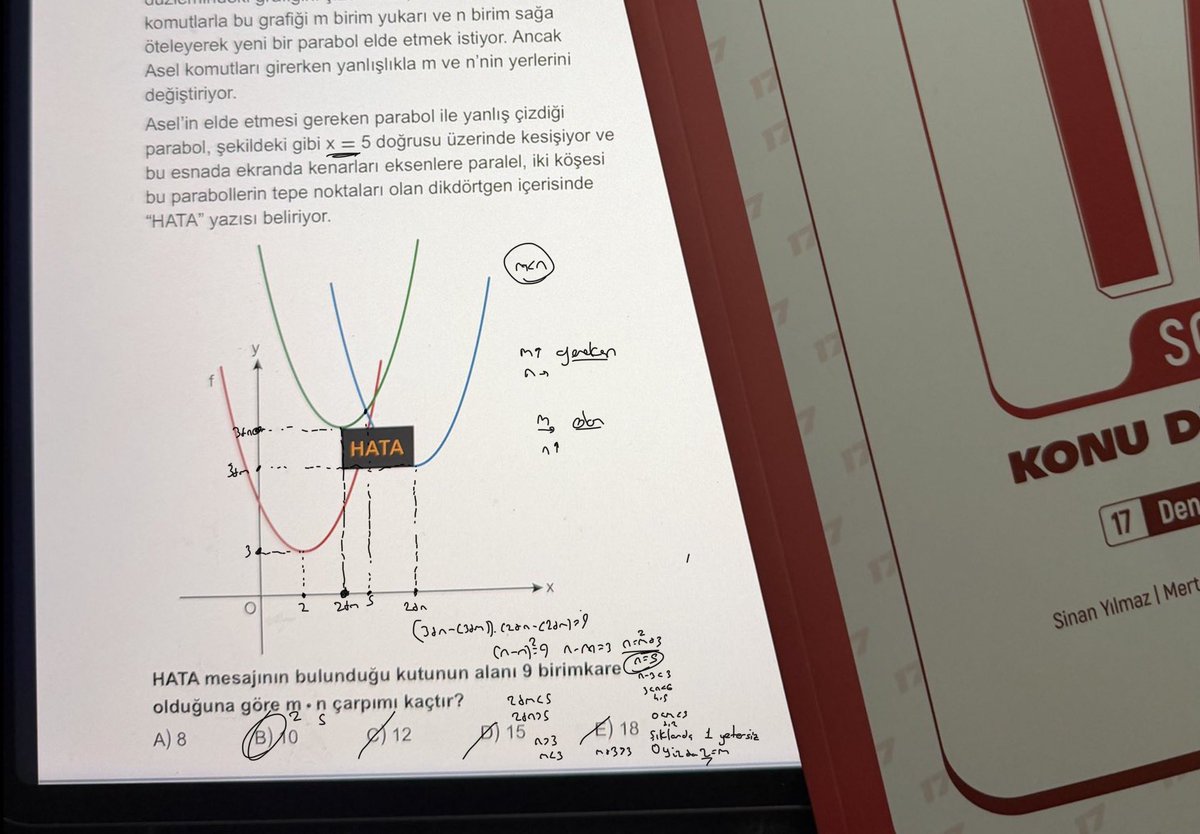 komutlarla bu grafiği m birim yukarı ve n birim sağa
öteleyerek yeni bir parabol elde etmek istiyor. Ancak
Asel komutları girerken yanlışlıkla m ve n'nin yerlerini
değiştiriyor.
Asel'in elde etmesi gereken parabol ile yanlış çizdiği
parabol, şekildeki gibi x = 5 doğrusu üzerinde kesişiyor ve
bu esnada ekranda kenarları eksenlere paralel, iki köşesi
bu parabollerin tepe noktaları olan dikdörtgen içerisinde
"HATA" yazısı beliriyor.
m<n
m↑ gereken
n→
m→ olan
n↑
y
f
3+n
HATA
3+m
3
O
2
2+m
5
2+n
x
(3+n-(3+m)).(2+n-(2+m))=9
(n-m)²=9 n-m=3 n=m+3
n=5
HATA mesajının bulunduğu kutunun alanı 9 birimkare
n-3<3
3<n<6
4,5
olduğuna göre m • n çarpımı kaçtır?
2 5
2+m<5
2+n>5
0<m<3
1,2
A) 8 B) 10 C) 12 D) 15 E) 18
n>3
m<3
m+3>3
şıklarda 1 yetersiz
O yüzden 2=m
SO
KONU D
17 Den
Sinan Yılmaz | Mert